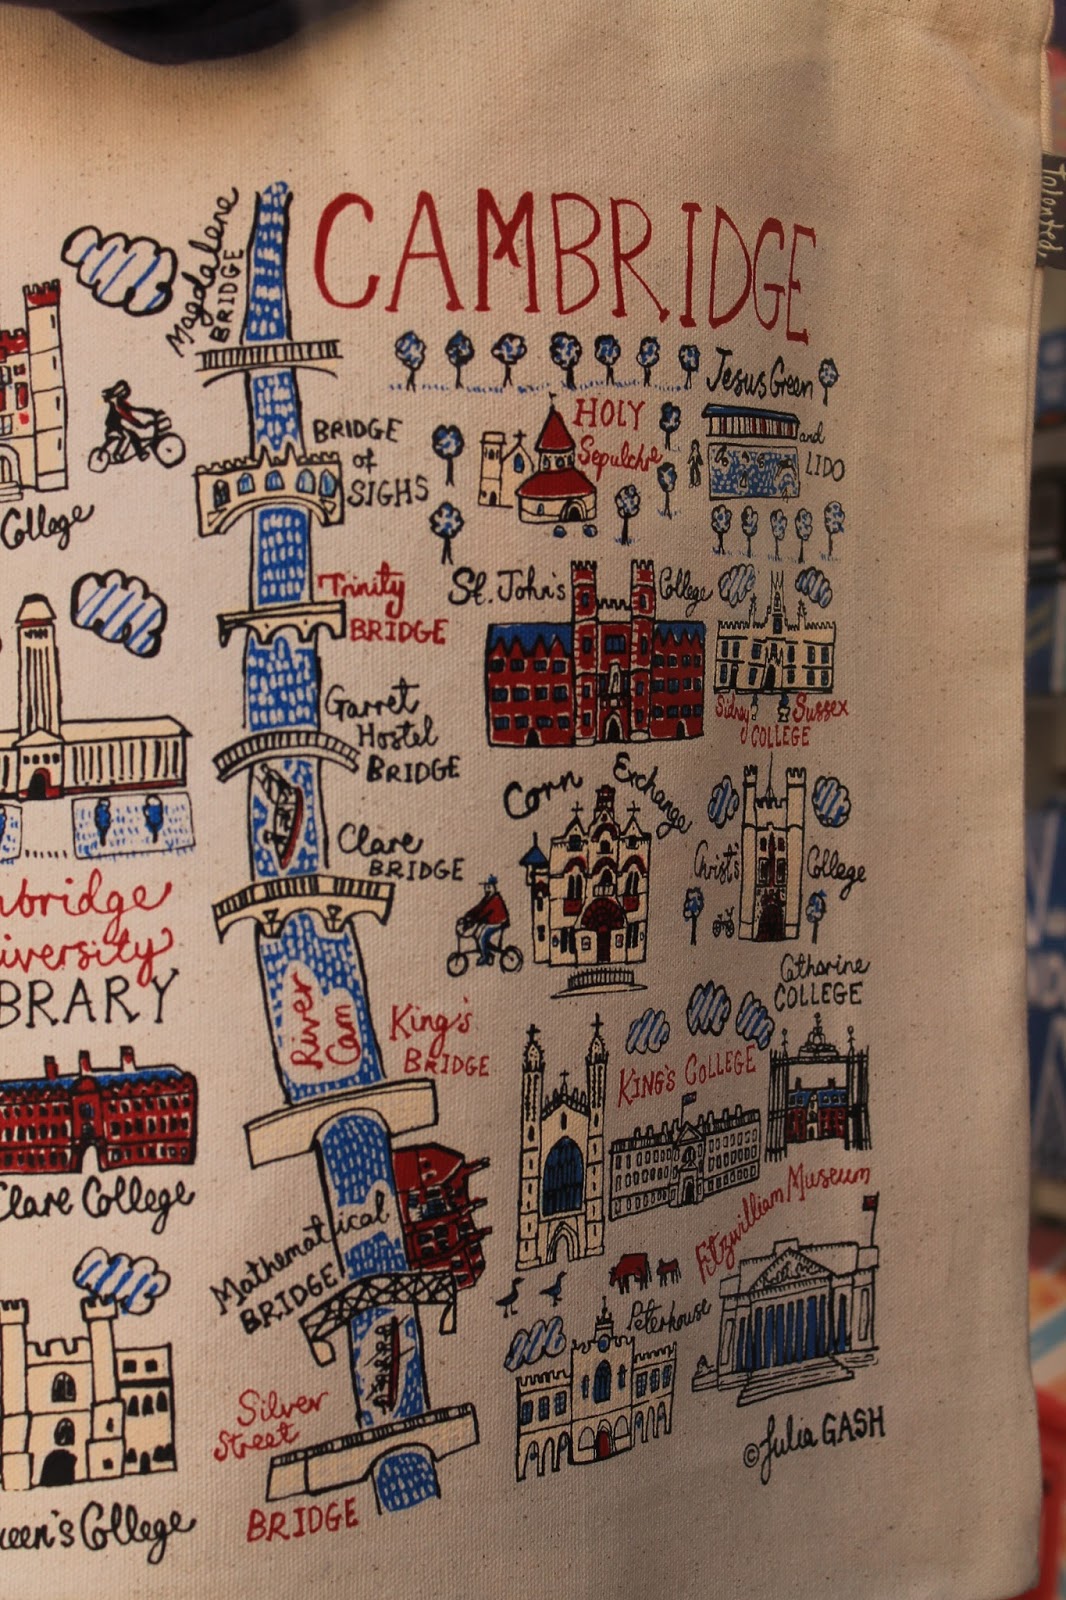 CAMBRIDGE
Magdalene
BRIDGE
Jesus Green
and
LIDO
HOLY
Sepulchre
BRIDGE
of
SIGHS
College
Trinity
BRIDGE
St. John's College
Sidney Sussex
COLLEGE
Garret
Hostel
BRIDGE
Corn Exchange
Clare
BRIDGE
Christ's College
mbridge
iversity
BRARY
Catharine
COLLEGE
River
Cam
King's
BRIDGE
KING'S COLLEGE
Clare College
Fitzwilliam Museum
Mathematical
BRIDGE
Peterhouse
Silver
Street
BRIDGE
ueen's College
© Julia GASH
Talented